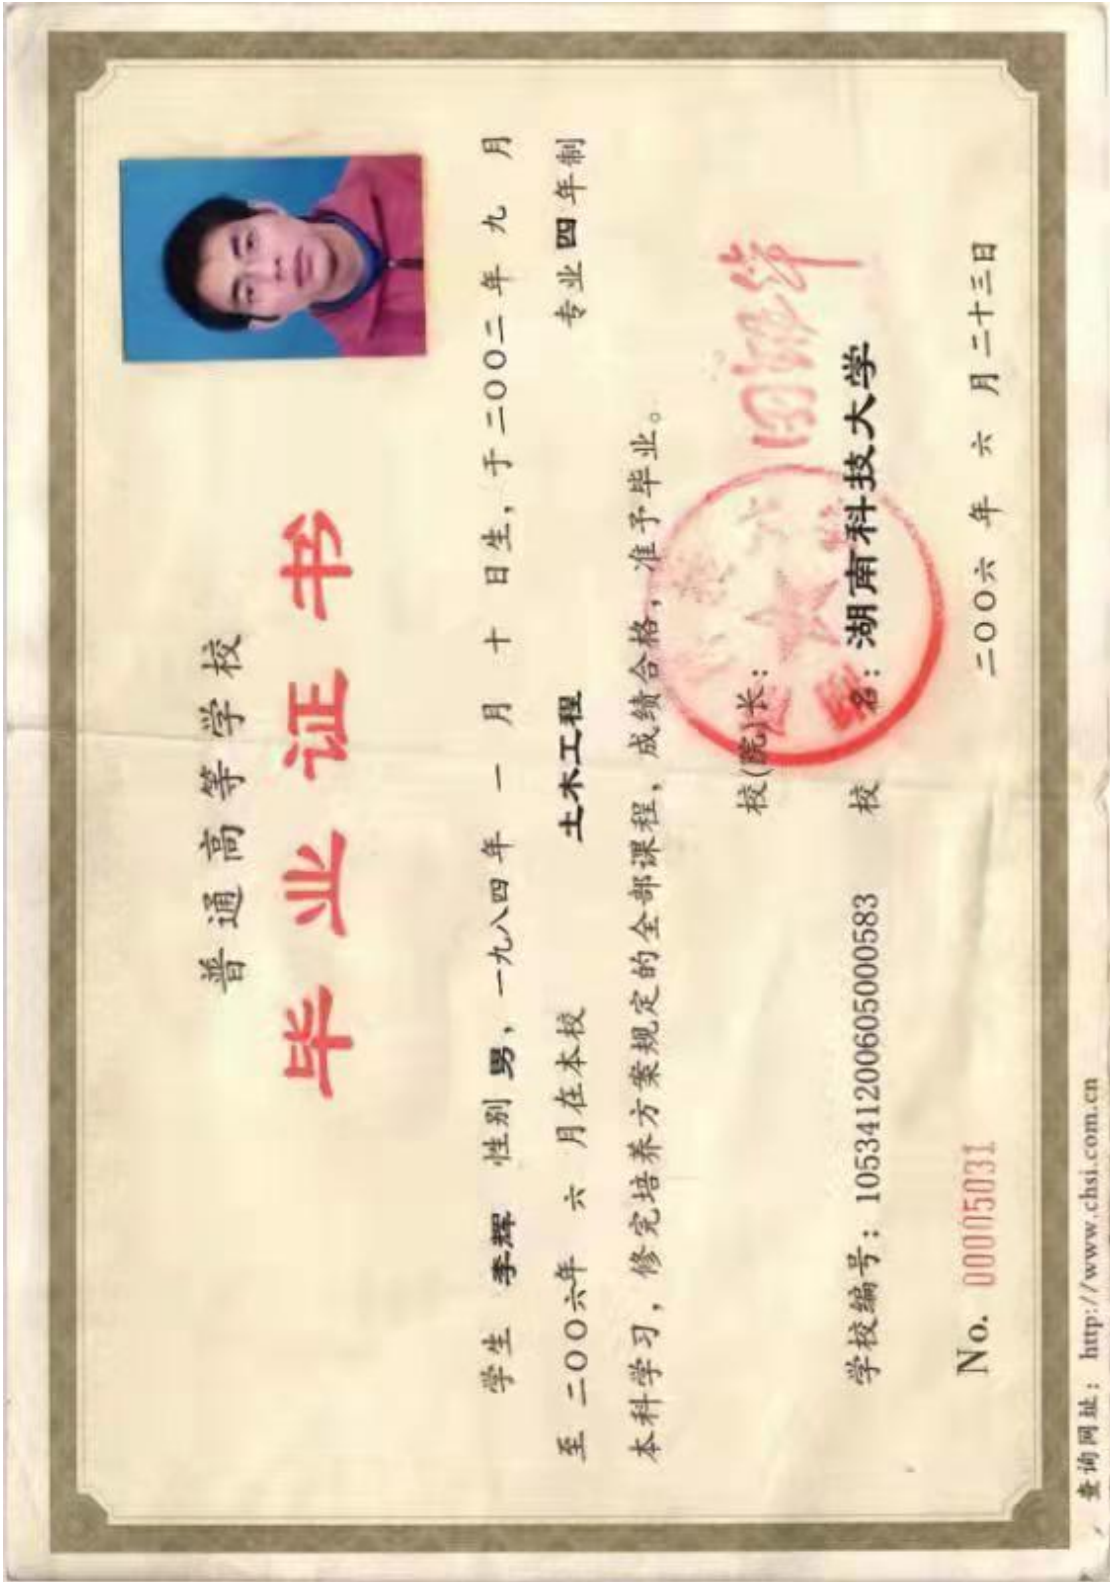 普通高等学校
毕业证书
学生 李辉 性别 男，一九八四年 一 月 十 日生，于二〇〇二年 九 月
至 二〇〇六年 六 月在本校 土木工程 专业 四 年制
本科学习，修完培养方案规定的全部课程，成绩合格，准予毕业。
校(院)长：
学校编号：105341200605000583 校 名：湖南科技大学
No. 00005031 二〇〇六 年 六 月二十三日
查询网址：http://www.chsi.com.cn